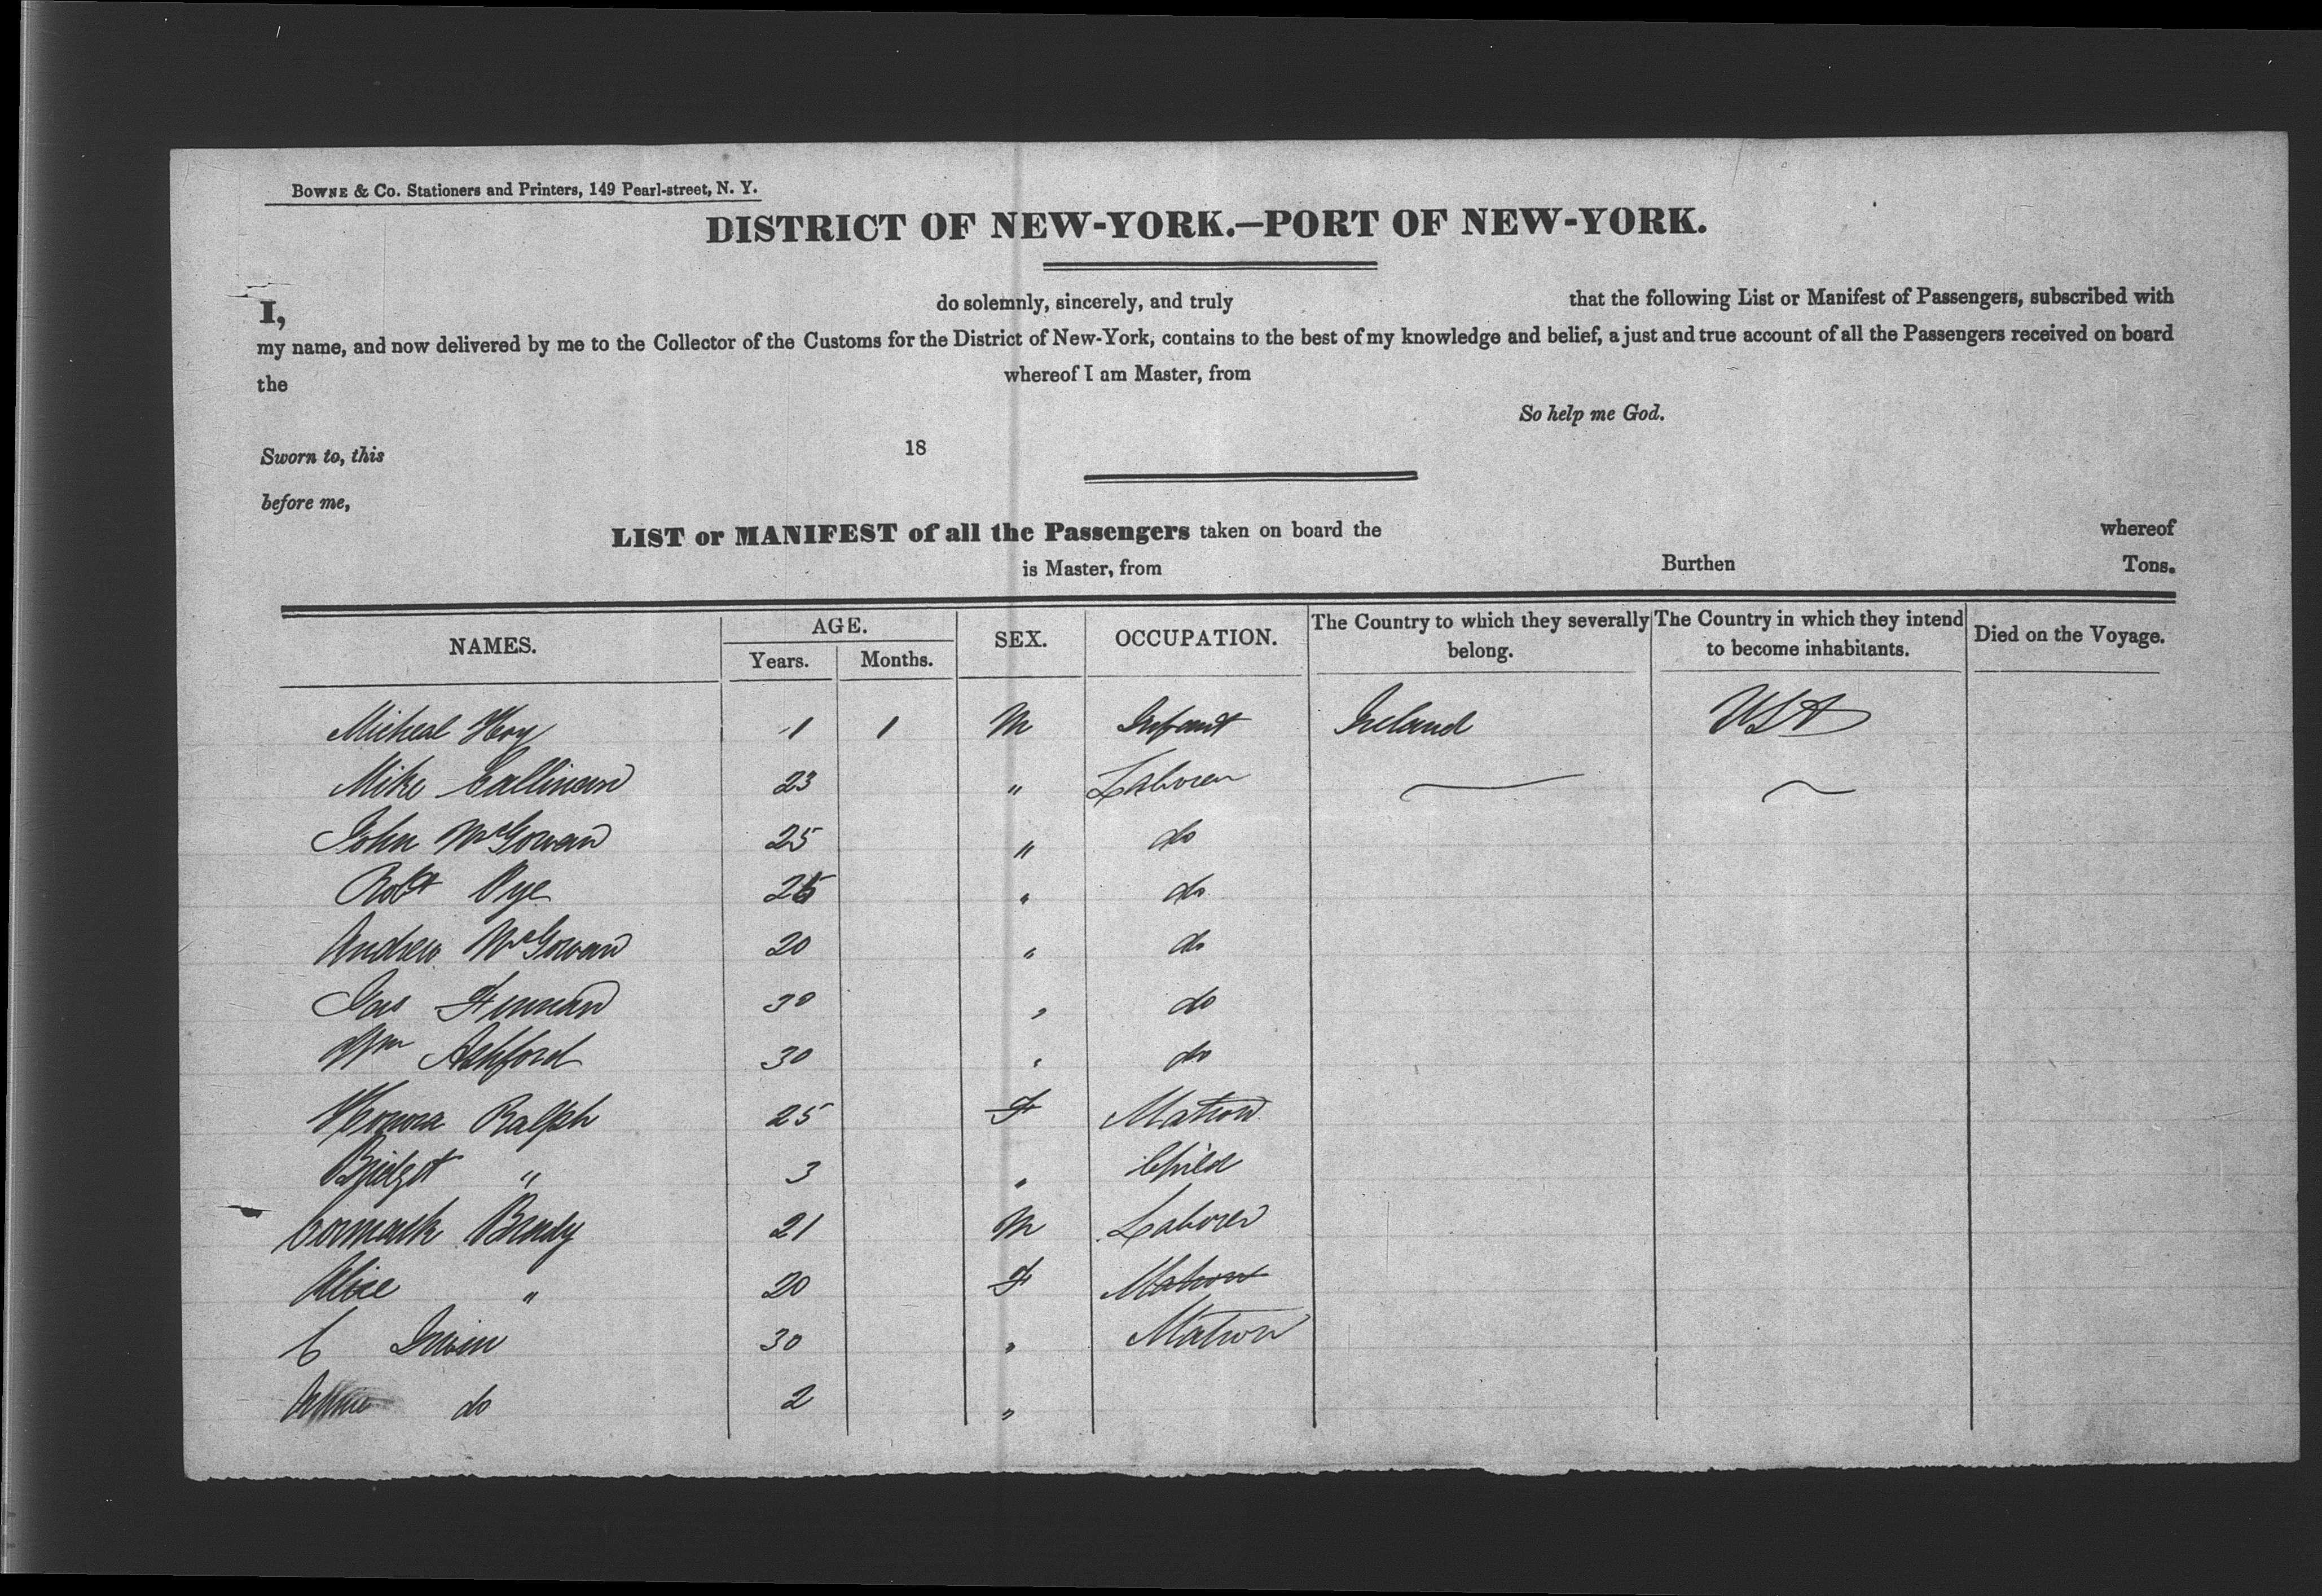 BOWNE & Co. Stationers and Printers, 149 Pearl-street, N. Y.
DISTRICT OF NEW-YORK.—PORT OF NEW-YORK.
I, do solemnly, sincerely, and truly that the following List or Manifest of Passengers, subscribed with
my name, and now delivered by me to the Collector of the Customs for the District of New-York, contains to the best of my knowledge and belief, a just and true account of all the Passengers received on board
the whereof I am Master, from
So help me God.
Sworn to, this 18
before me,
LIST or MANIFEST of all the Passengers taken on board the whereof
is Master, from Burthen Tons.
NAMES. AGE. Years. Months. SEX. OCCUPATION. The Country to which they severally belong. The Country in which they intend to become inhabitants. Died on the Voyage.
Micheal Hoy 1 1 M Infant Ireland USA
Mike Callinan 23 " Laborer
John McGowan 25 " do
Robt Pye 25 " do
Andrew McGowan 20 " do
Jas Finnan 30 " do
Wm Ashford 30 " do
Honora Ralph 25 F Matron
Bridget " 3 " Child
Cormack Brady 21 M Laborer
Alice " 20 F Matron
C Irwin 30 " Matron
do 2 "